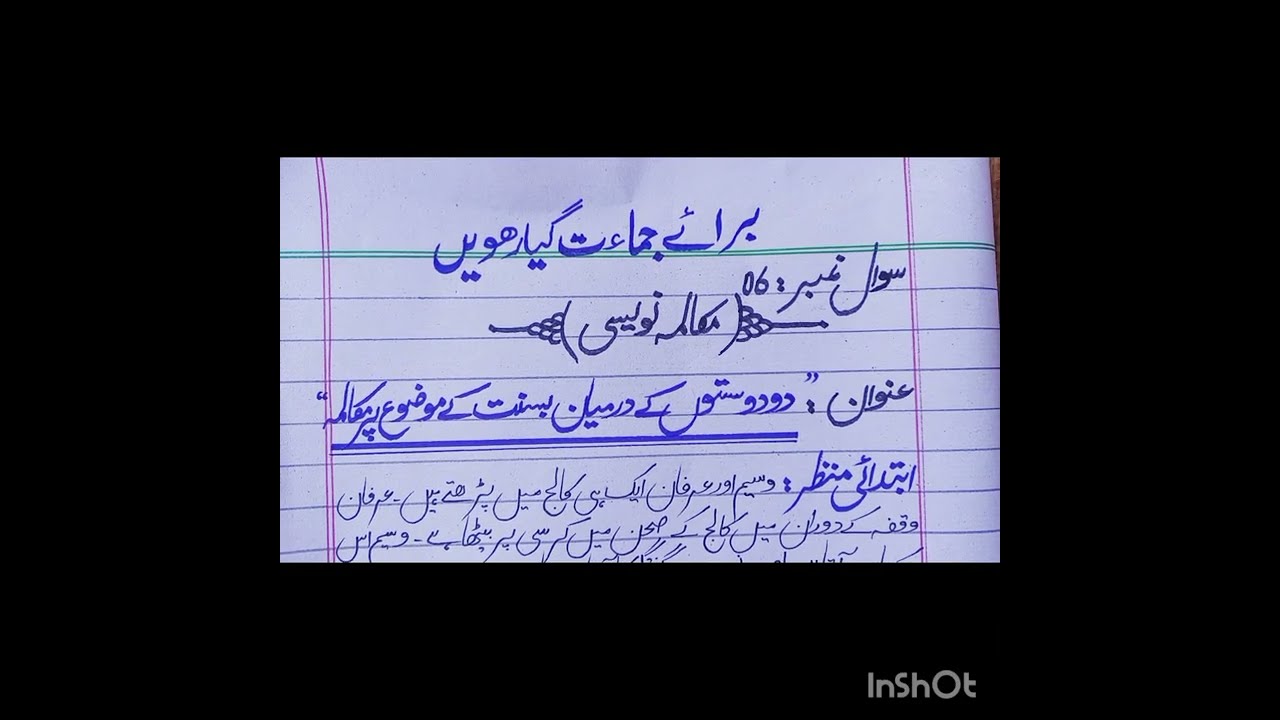 برائے جماعت گیارھویں
سوال نمبر: 06
(مکالمہ نویسی)
عنوان: "دو دوستوں کے درمیان بسنت کے موضوع پر مکالمہ"
ابتدائی منظر: وسیم اور عرفان ایک ہی کالج میں پڑھتے ہیں۔ عرفان
وقفہ کے دوران میں کالج کے صحن میں کرسی پر بیٹھا ہے۔ وسیم اس
InShOt